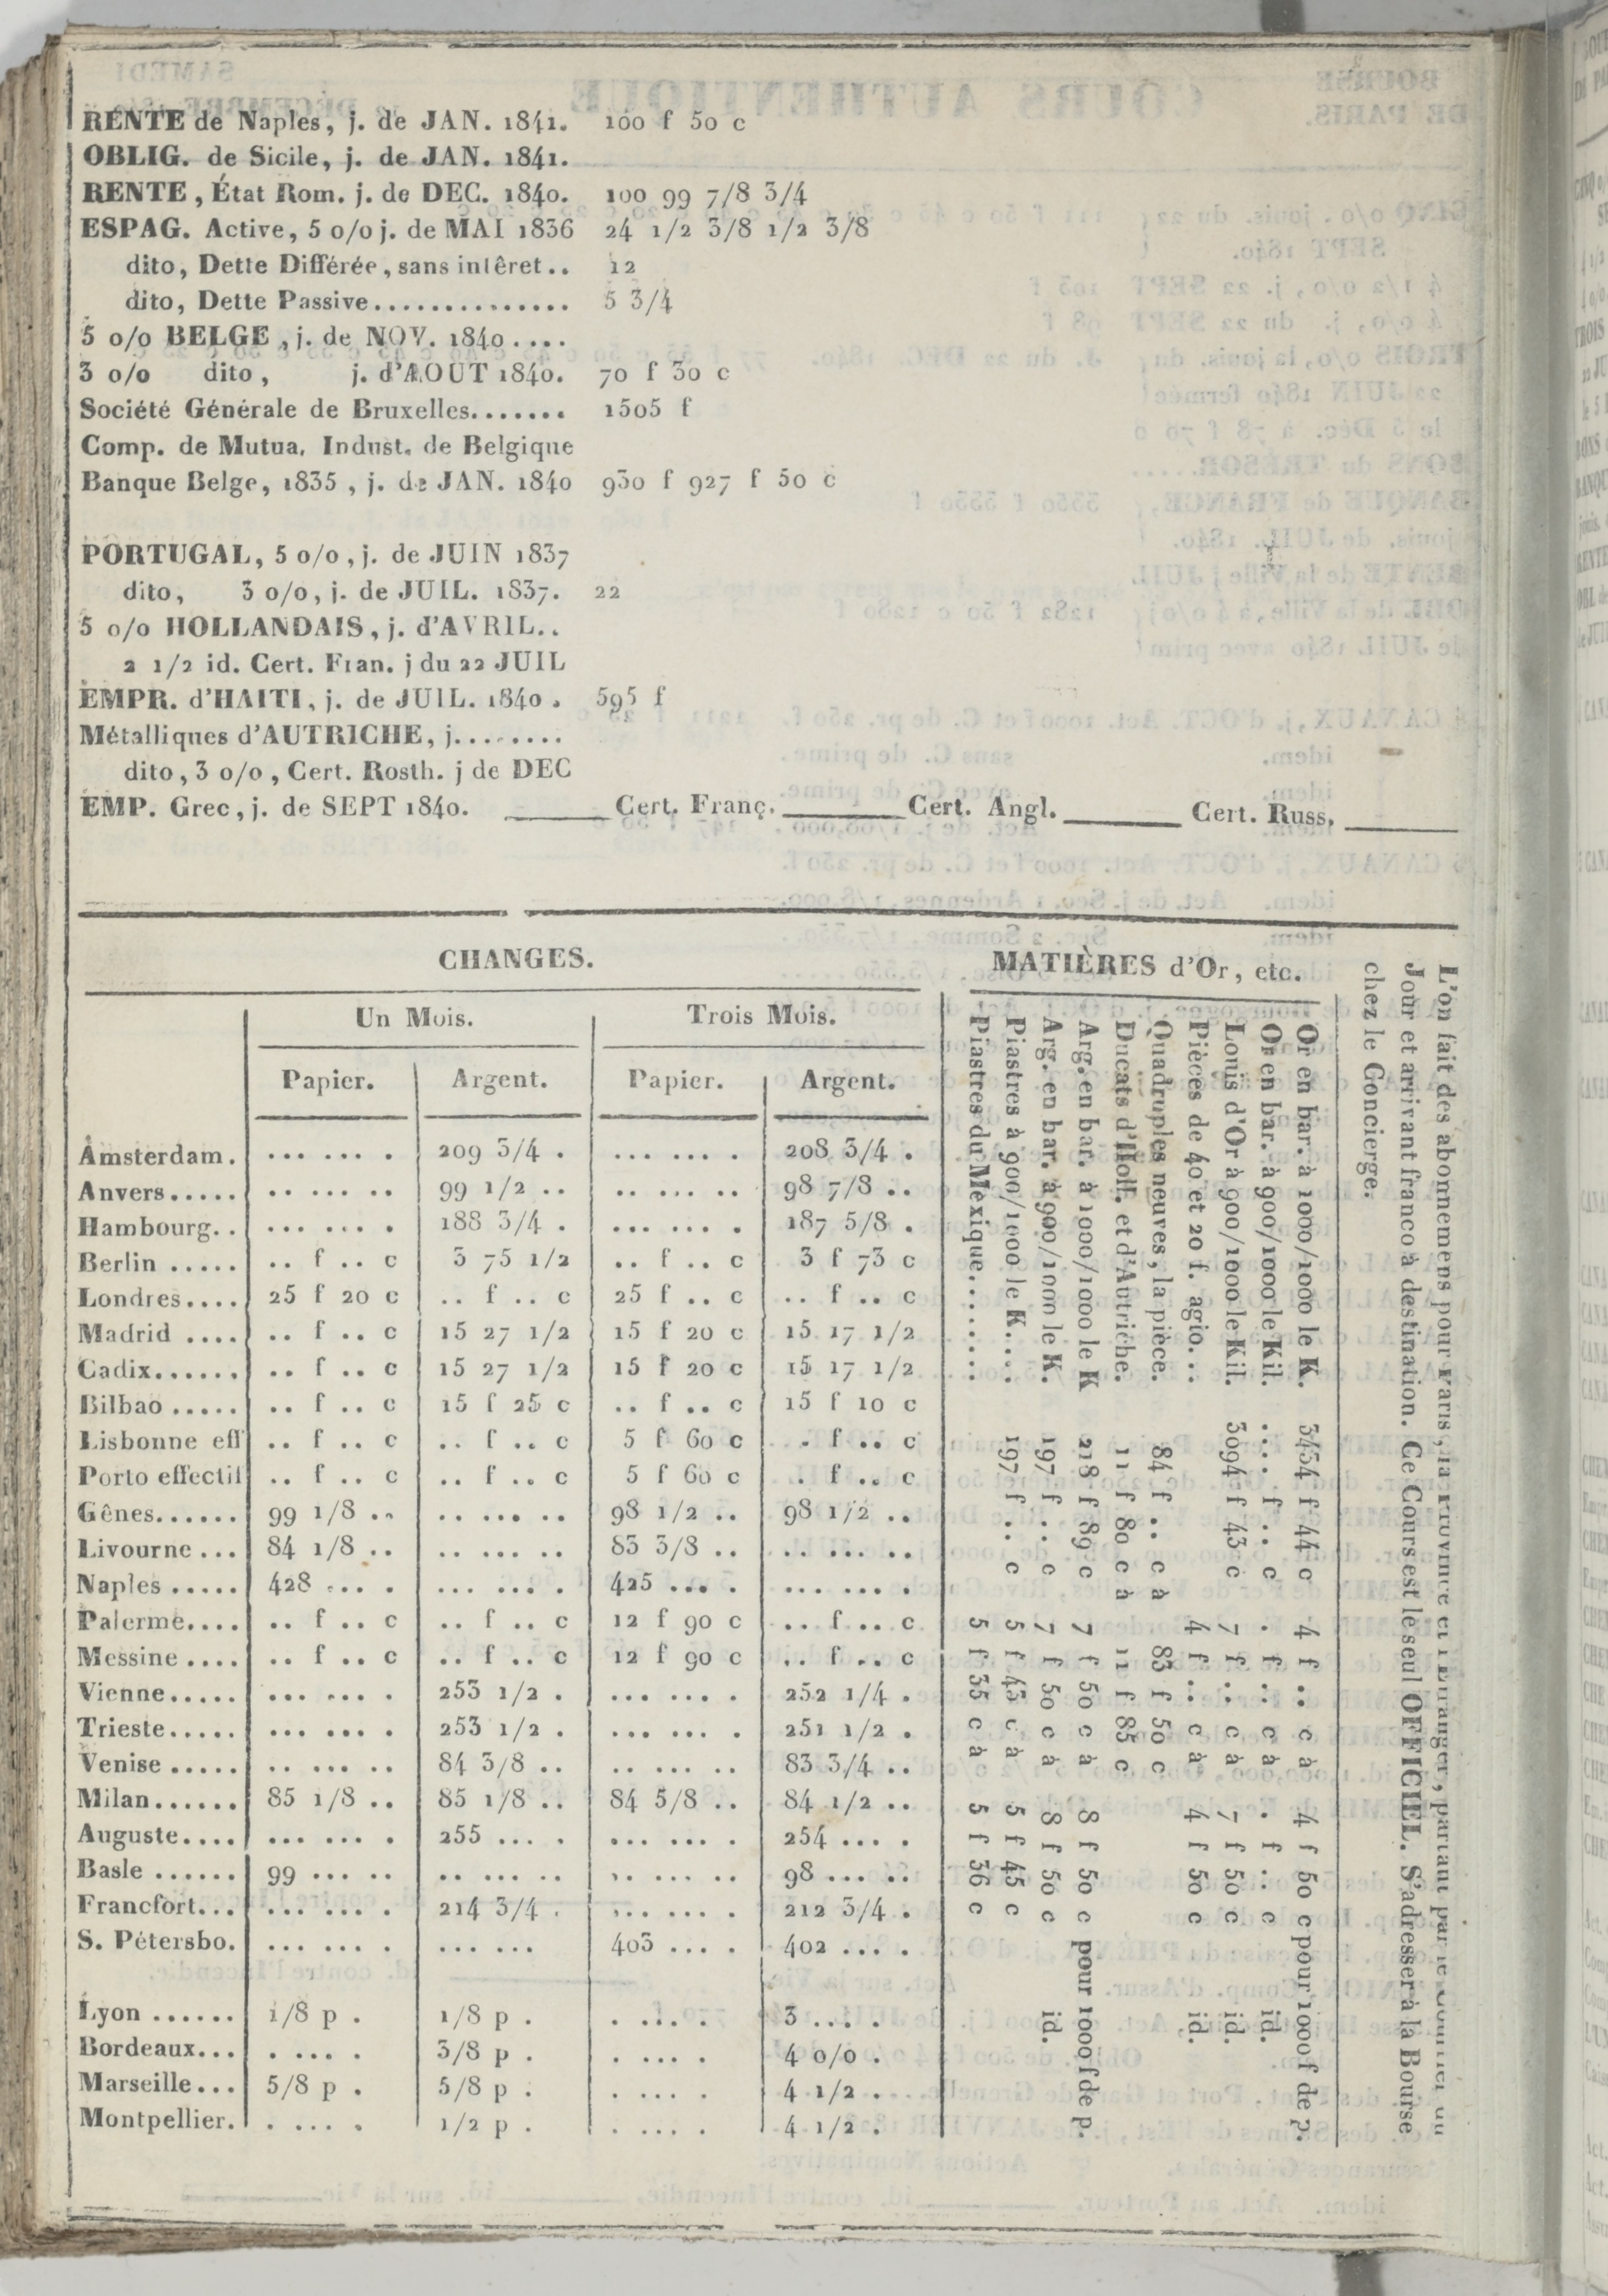 RENTE de Naples, j. de JAN. 1841. 100 f 50 c
OBLIG. de Sicile, j. de JAN. 1841.
RENTE, État Rom. j. de DEC. 1840. 100 99 7/8 3/4
ESPAG. Active, 5 o/o j. de MAI 1836 24 1/2 3/8 1/2 3/8
dito, Dette Différée, sans intêret.. 12
dito, Dette Passive.............. 5 3/4
5 o/o BELGE, j. de NOV. 1840....
3 o/o dito, j. d'AOUT 1840. 70 f 30 c
Société Générale de Bruxelles....... 1505 f
Comp. de Mutua. Indust. de Belgique
Banque Belge, 1835, j. de JAN. 1840 930 f 927 f 50 c
PORTUGAL, 5 o/o, j. de JUIN 1837
dito, 3 o/o, j. de JUIL. 1837. 22
5 o/o HOLLANDAIS, j. d'AVRIL..
2 1/2 id. Cert. Fran. j du 22 JUIL
EMPR. d'HAITI, j. de JUIL. 1840. 595 f
Métalliques d'AUTRICHE, j........
dito, 3 o/o, Cert. Rosth. j de DEC
EMP. Grec, j. de SEPT 1840. ______ Cert. Franç. ______ Cert. Angl. ______ Cert. Russ. ______
CHANGES.
Un Mois. Trois Mois.
Papier. Argent. Papier. Argent.
Amsterdam. ... ... . 209 3/4 . ... ... . 208 3/4 .
Anvers..... .. ... .. 99 1/2 .. .. ... .. 98 7/8 ..
Hambourg.. ... ... . 188 3/4 . ... ... . 187 5/8 .
Berlin ..... .. f .. c 3 75 1/2 .. f .. c 3 f 73 c
Londres.... 25 f 20 c .. f .. c 25 f .. c .. f .. c
Madrid .... .. f .. c 15 27 1/2 15 f 20 c 15 17 1/2
Cadix...... .. f .. c 15 27 1/2 15 f 20 c 15 17 1/2
Bilbao ..... .. f .. c 15 f 25 c .. f .. c 15 f 10 c
Lisbonne eff .. f .. c .. f .. c 5 f 60 c . f .. c
Porto effectif .. f .. c .. f .. c 5 f 60 c . f .. c
Gênes...... 99 1/8 .. .. ... .. 98 1/2 .. 98 1/2 ..
Livourne ... 84 1/8 .. .. ... .. 83 3/8 .. .. ... ..
Naples ..... 428 ... . ... ... . 425 ... . ... ... .
Palerme.... .. f .. c .. f .. c 12 f 90 c .. f .. c
Messine .... .. f .. c .. f .. c 12 f 90 c .. f .. c
Vienne..... ... ... . 253 1/2 . ... ... . 252 1/4 .
Trieste..... ... ... . 253 1/2 . ... ... . 251 1/2 .
Venise ..... .. ... .. 84 3/8 .. .. ... .. 83 3/4 ..
Milan...... 85 1/8 .. 85 1/8 .. 84 5/8 .. 84 1/2 ..
Auguste.... ... ... . 255 ... . ... ... . 254 ... .
Basle ...... 99 ... .. .. ... .. .. ... .. 98 ... ..
Francfort... ... ... . 214 3/4 . ... ... . 212 3/4 .
S. Pétersbo. ... ... . ... ... 403 ... . 402 ... .
Lyon ...... 1/8 p . 1/8 p . . ... . 3 ... .
Bordeaux... . ... . 3/8 p . . ... . 4 o/o .
Marseille... 5/8 p . 5/8 p . . ... . 4 1/2 .
Montpellier. . ... . 1/2 p . . ... . 4 1/2 .
MATIÈRES d'Or, etc.
Or en bar. à 1000/1000 le K. 3434 f 44 c 4 f .. c à 4 f 50 c pour 1000 f de p.
Or en bar. à 900/1000 le Kil. .... f .. c . f .. c à . f .. c id.
Louis d'Or à 900/1000 le Kil. 3094 f 43 c 7 f .. c à 7 f 50 c id.
Pièces de 40 et 20 f. agio... 4 f .. c à 4 f 50 c id.
Quadruples neuves, la pièce. 84 f .. c à 83 f 50 c
Ducats d'Holl. et d'Autriche. 11 f 80 c à 11 f 85 c
Arg. en bar. à 1000/1000 le K 218 f 89 c 7 f 50 c à 8 f 50 c pour 1000 f de p.
Arg. en bar. à 900/1000 le K. 197 f .. c 7 f 50 c à 8 f 50 c id.
Piastres à 900/1000 le K.... 197 f .. c 5 f 43 c à 5 f 45 c
Piastres du Mexique....... 5 f 35 c à 5 f 36 c
L'on fait des abonnemens pour Paris, la Province et l'Etranger, partant par le Courrier du
Jour et arrivant franco à destination. Ce Cours est le seul OFFICIEL. S'adresser à la Bourse
chez le Concierge.